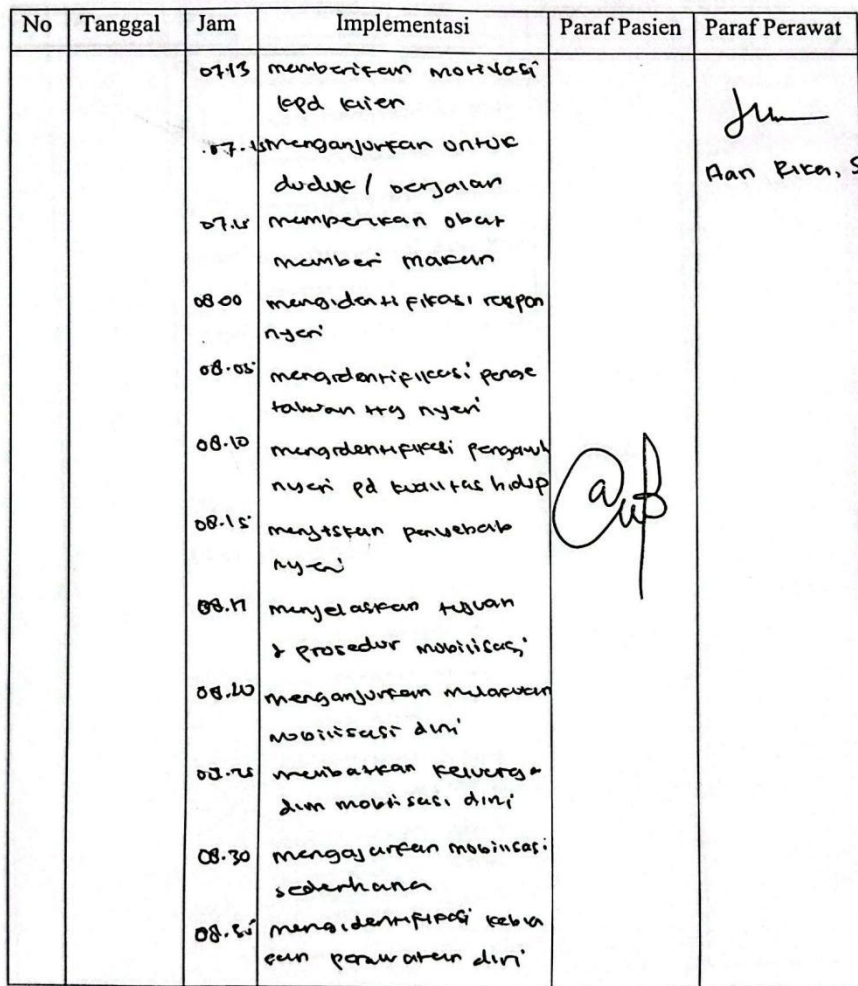 No Tanggal Jam Implementasi Paraf Pasien Paraf Perawat
07.13 memberikan motivasi
kpd klien
07.15 menganjurkan untuk
duduk / berjalan
Aan Rika, S
memberikan obat
memberi makan
08.00 mengidentifikasi respon
nyeri
08.05 mengidentifikasi penge
tahuan ttg nyeri
08.10 mengidentifikasi pengaruh
nyeri pd kualitas hidup
08.15 penyebab
nyeri
08.17 menjelaskan tujuan
& prosedur mobilisasi
08.20 menganjurkan melakukan
mobilisasi dini
08.25 melibatkan keluarga
dlm mobilisasi dini
08.30 mengajarkan mobilisasi
sederhana
mengidentifikasi kebia
saan perawatan diri